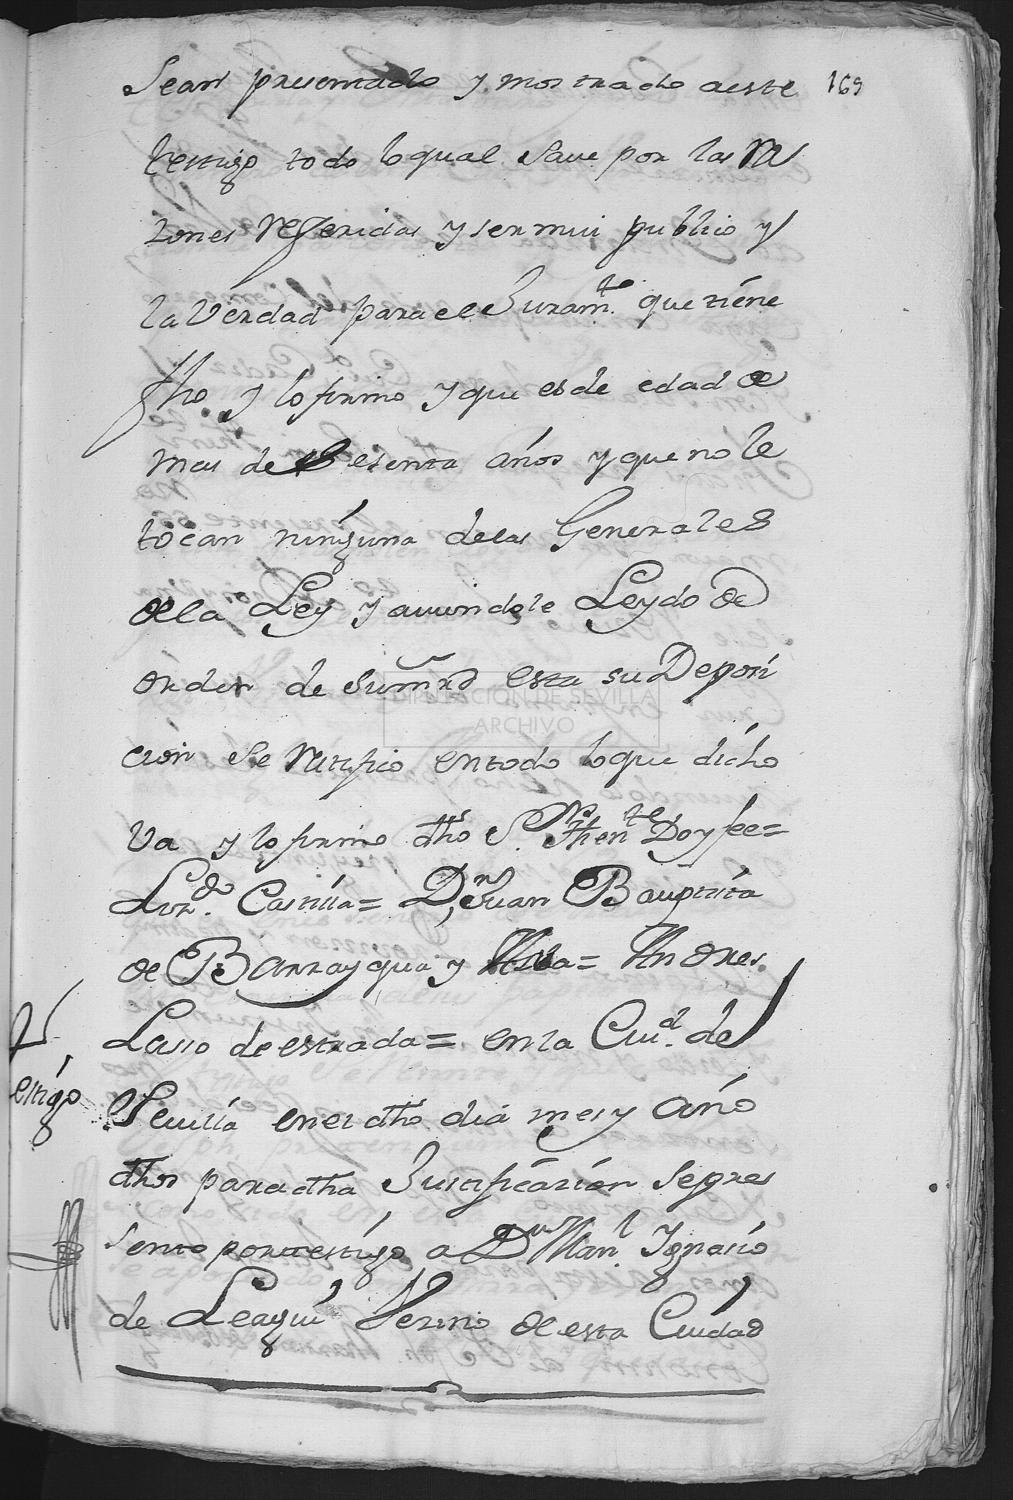 Sean presentado y mostrado aeste 169
testigo todo loqual Save por las Ra
zones Referidas y ser mui publico y
la Verdad para el Juram.to que tiene
fho y lo firmo y que es de edad de
mas de sesenta años y que no le
tocan ninguna delas Generales
de la Ley y aviendole Leydo de
orden de su mrd esta su Deposi
cion Se Ratifico entodo loque dicho
Va y lo firmo dho S.r Then.te Doy fee =
Liz.do Casilla = D.n Juan Baupttista
de Barrayqua y = Andres
Lasso de estrada = en la Ciu.d de
testigo
Sevilla en el dho dia mes y año
dhos para dha Justificazion se pres
sento por testigo a D.n Man.l Ygnasio
de Leagui Vezino de esta Ciudad
DIPUTACIÓN DE SEVILLA
ARCHIVO